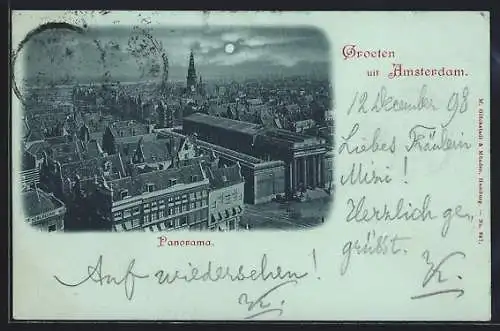 Groeten
uit Amsterdam.
12 December 98
Liebes Fräulein
Mimi!
Herzlich ge-
grüsst.
K.
Panorama.
Auf wiedersehen!
K.
M. Glückstadt & Münden, Hamburg. — No. 847.